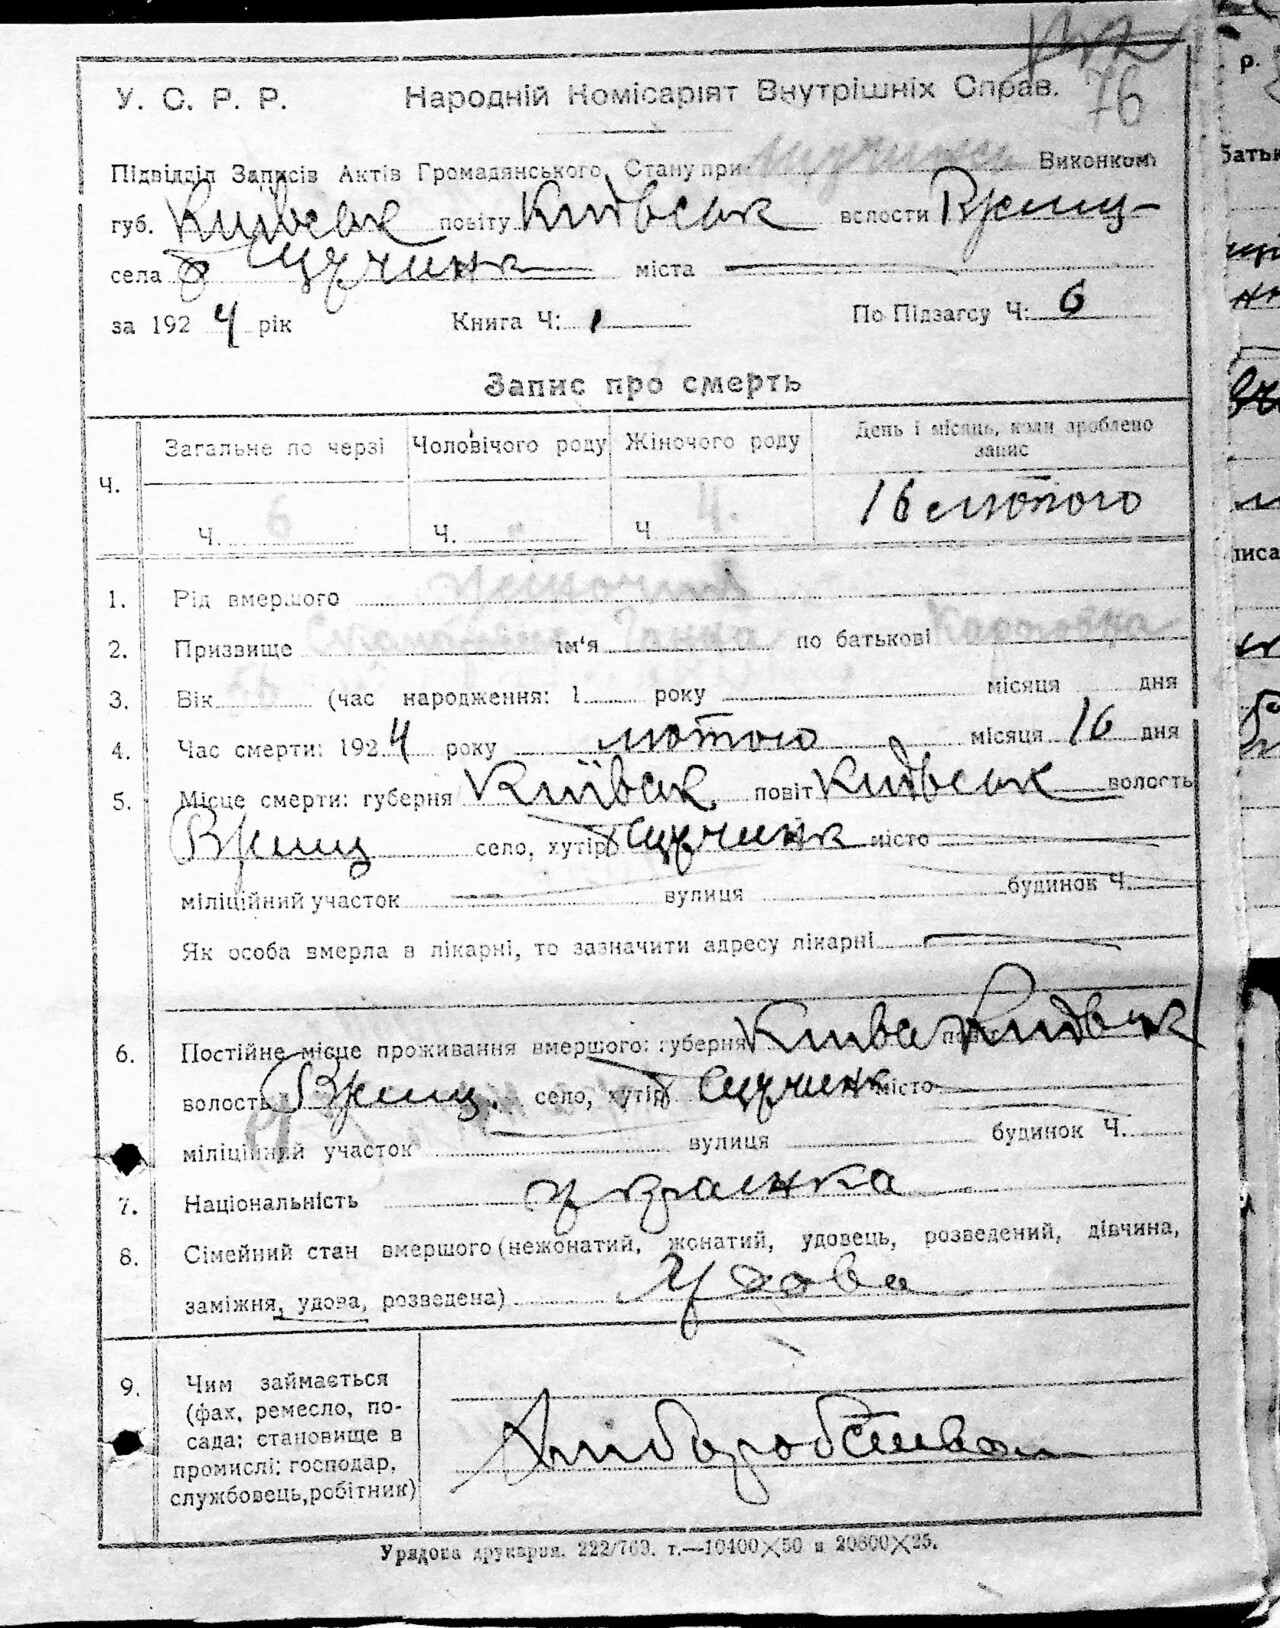 76
У. С. Р. Р. Народній Комісаріят Внутрішніх Справ.
Підвідділ Записів Актів Громадянського Стану при Виконкомі
губ. Київськ повіту Київськ волости
села міста
за 1924 рік Книга Ч: 1 По Підзагсу Ч: 6
Запис про смерть
Загальне по черзі Чоловічого роду Жіночого роду День і місяць, коли зроблено запис
Ч. Ч. 6 Ч. " Ч 4. 16 лютого
1. Рід вмершого жіночий
2. Призвище ім'я Ганна по батькові
3. Вік (час народження: 1 року місяця дня
4. Час смерти: 1924 року лютого місяця 16 дня
5. Місце смерти: губерня Київськ повіт Київськ волость
село, хутір місто
міліційний участок вулиця будинок Ч.
Як особа вмерла в лікарні, то зазначити адресу лікарні
6. Постійне місце проживання вмершого: губерня Київськ пов Київськ
волость село, хутір місто
міліційний участок вулиця будинок Ч.
7. Національність українка
8. Сімейний стан вмершого (нежонатий, жонатий, удовець, розведений, дівчина,
заміжня, удова, розведена) Удова
9. Чим займається
(фах, ремесло, по-
сада: становище в
промислі: господар,
службовець, робітник)
Хліборобством
Урядова друкарня. 222/763. т.—10400×50 и 20800×25.